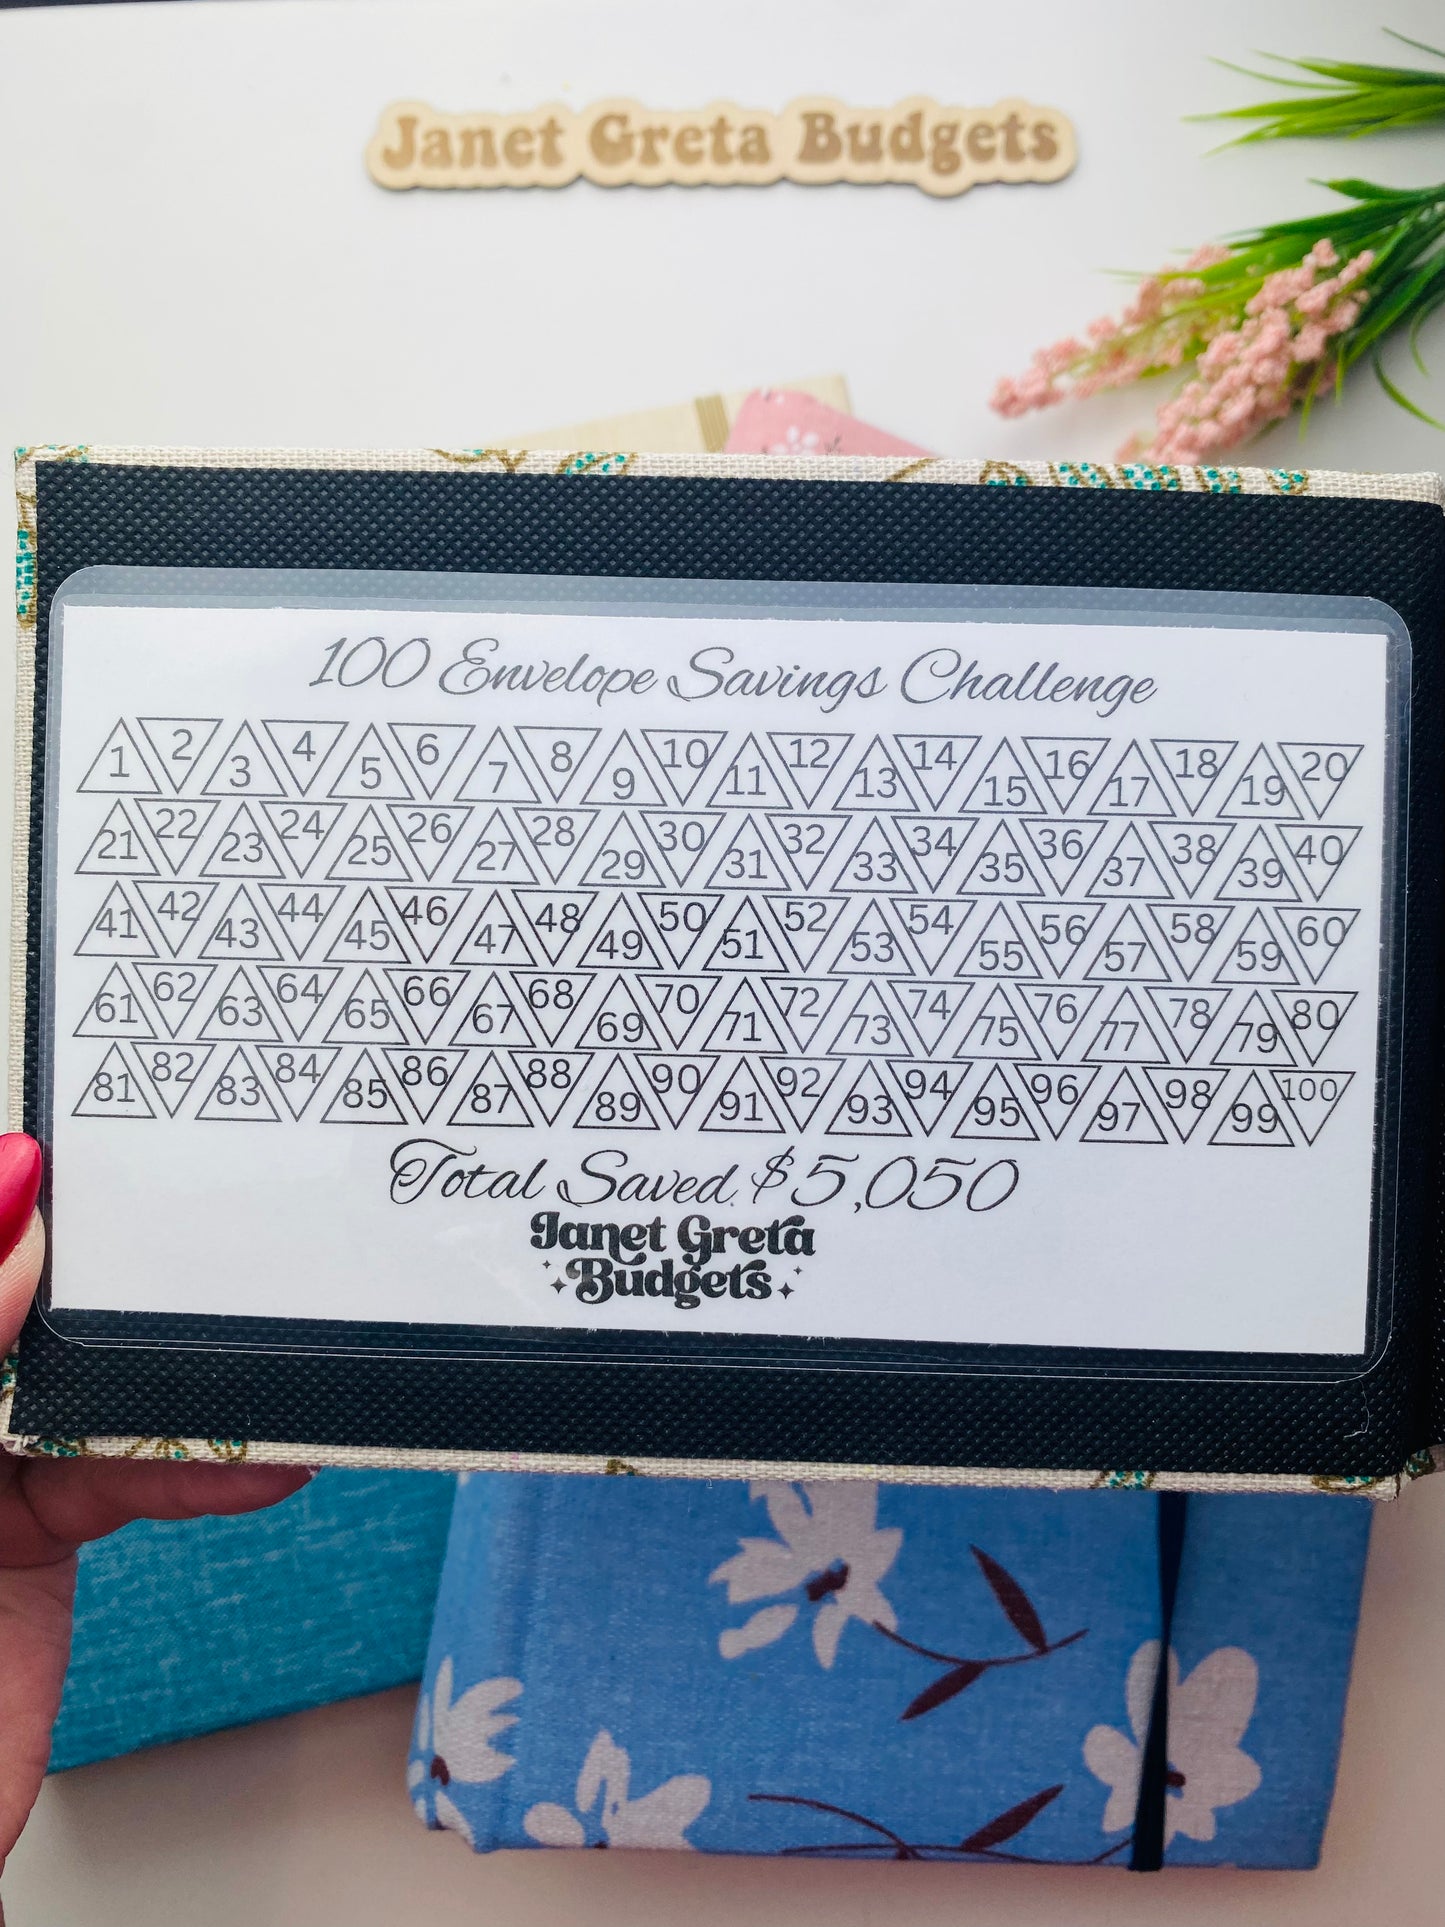 Janet Greta Budgets
100 Envelope Savings Challenge
1 2 3 4 5 6 7 8 9 10 11 12 13 14 15 16 17 18 19 20
21 22 23 24 25 26 27 28 29 30 31 32 33 34 35 36 37 38 39 40
41 42 43 44 45 46 47 48 49 50 51 52 53 54 55 56 57 58 59 60
61 62 63 64 65 66 67 68 69 70 71 72 73 74 75 76 77 78 79 80
81 82 83 84 85 86 87 88 89 90 91 92 93 94 95 96 97 98 99 100
Total Saved: $5,050
Janet Greta
Budgets